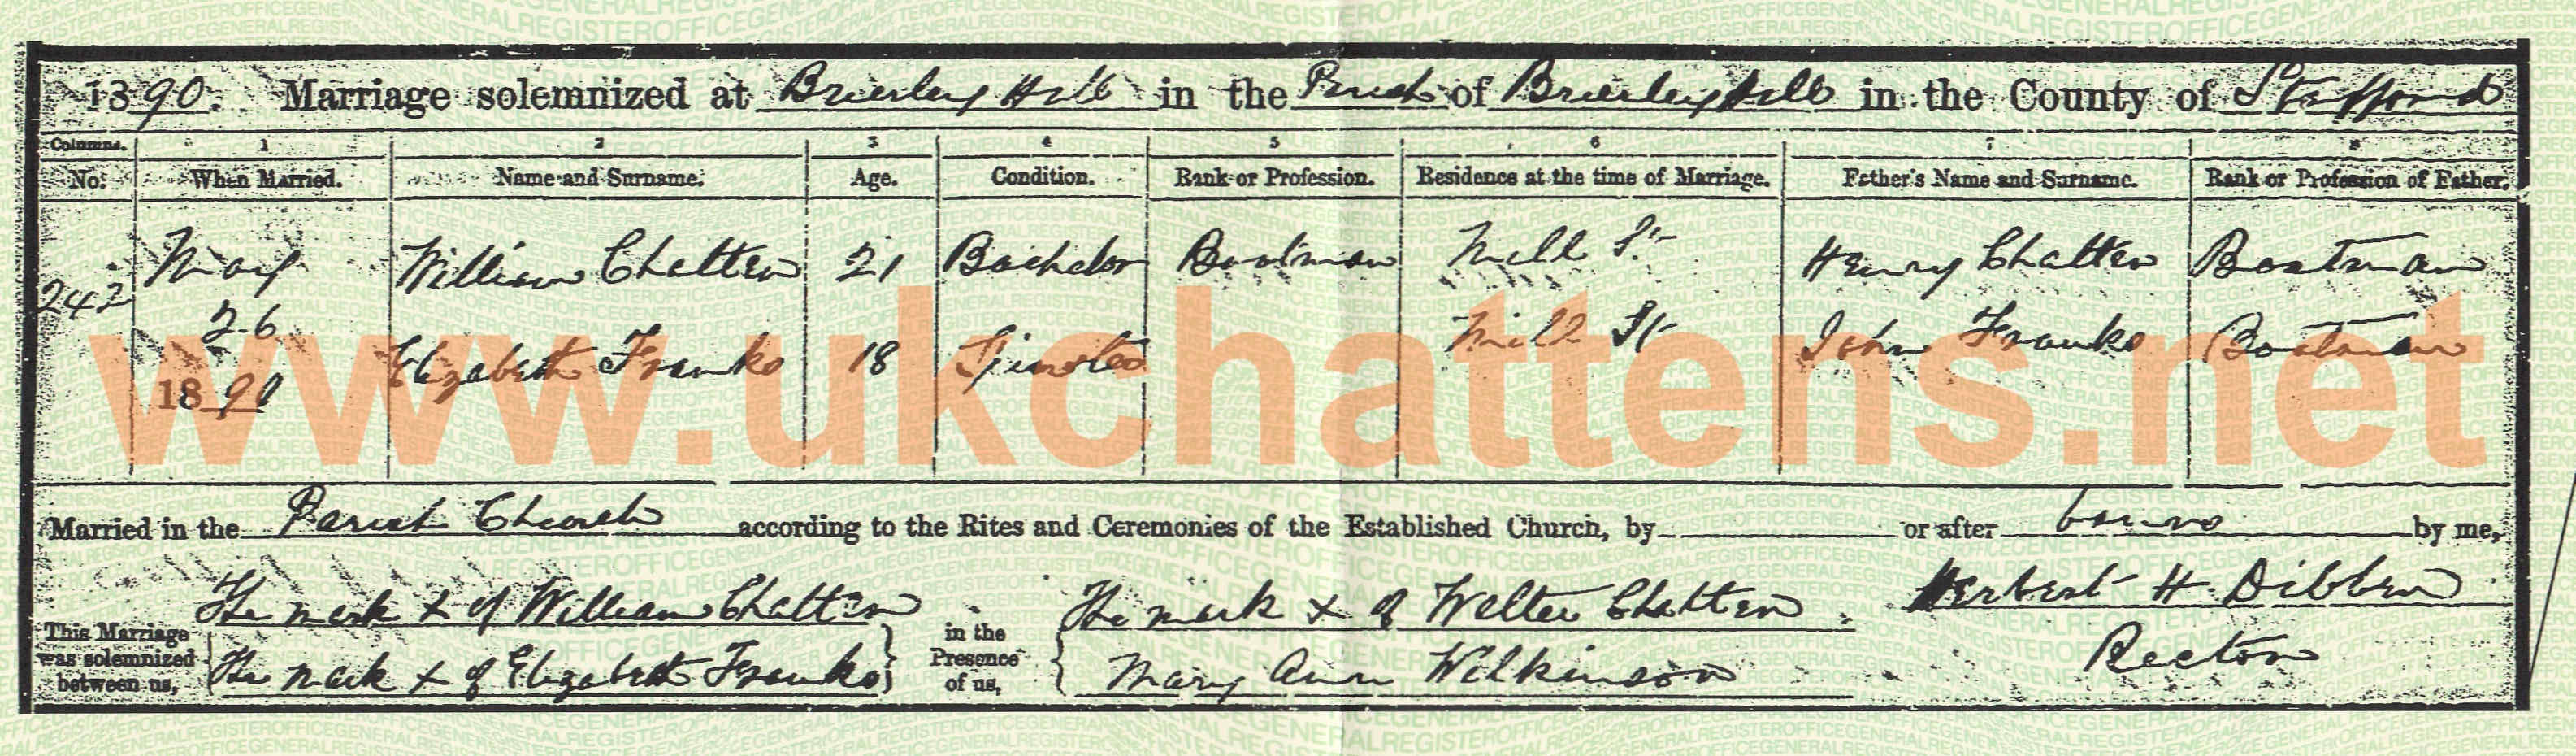 1890. Marriage solemnized at Brierley Hill in the Parish of Brierley Hill in the County of Stafford
Columns. 1 2 3 4 5 6 7 8
No. When Married. Name and Surname. Age. Condition. Rank or Profession. Residence at the time of Marriage. Father's Name and Surname. Rank or Profession of Father.
242 May 26 1890 William Chatten 21 Bachelor Boatman Mill St. Henry Chatten Boatman
Elizabeth Franks 18 Spinster Mill St John Franks Boatman
www.ukchattens.net
Married in the Parish Church according to the Rites and Ceremonies of the Established Church, by or after banns by me,
This Marriage was solemnized between us, The mark X of William Chatten in the Presence of us, The mark X of Walter Chatten Herbert H. Dibben
The mark X of Elizabeth Franks Mary Ann Wilkinson Rector